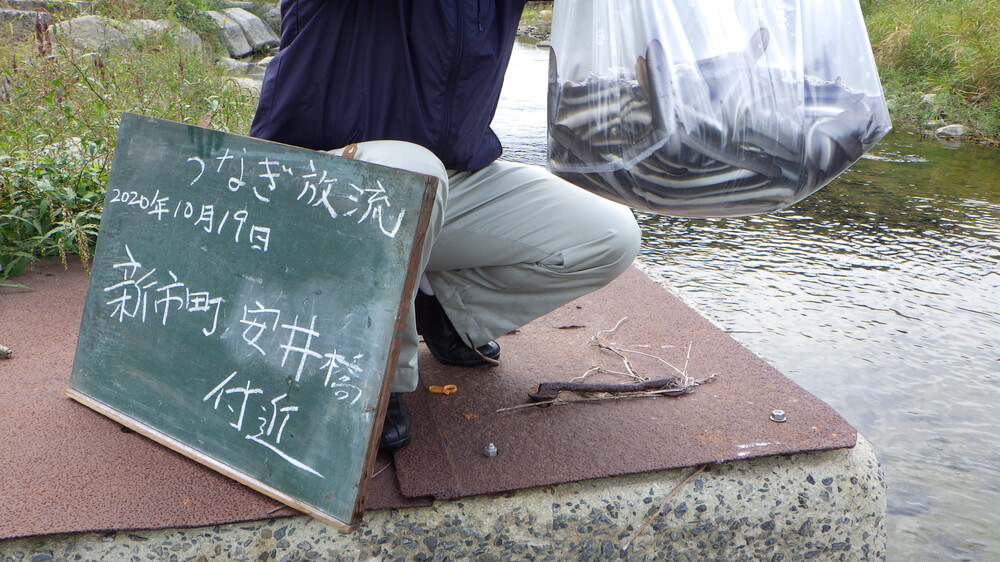 うなぎ放流
2020年10月19日
新市町、安井橋の
付近